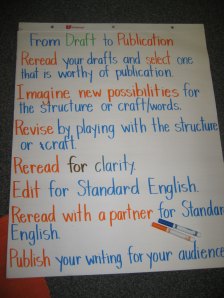 From Draft to Publication
Reread your drafts and select one
that is worthy of publication.
Imagine new possibilities for
the structure or craft/words.
Revise by playing with the structure
or craft.
Reread for clarity.
Edit for Standard English.
Reread with a partner for Standard
English.
Publish your writing for your audience